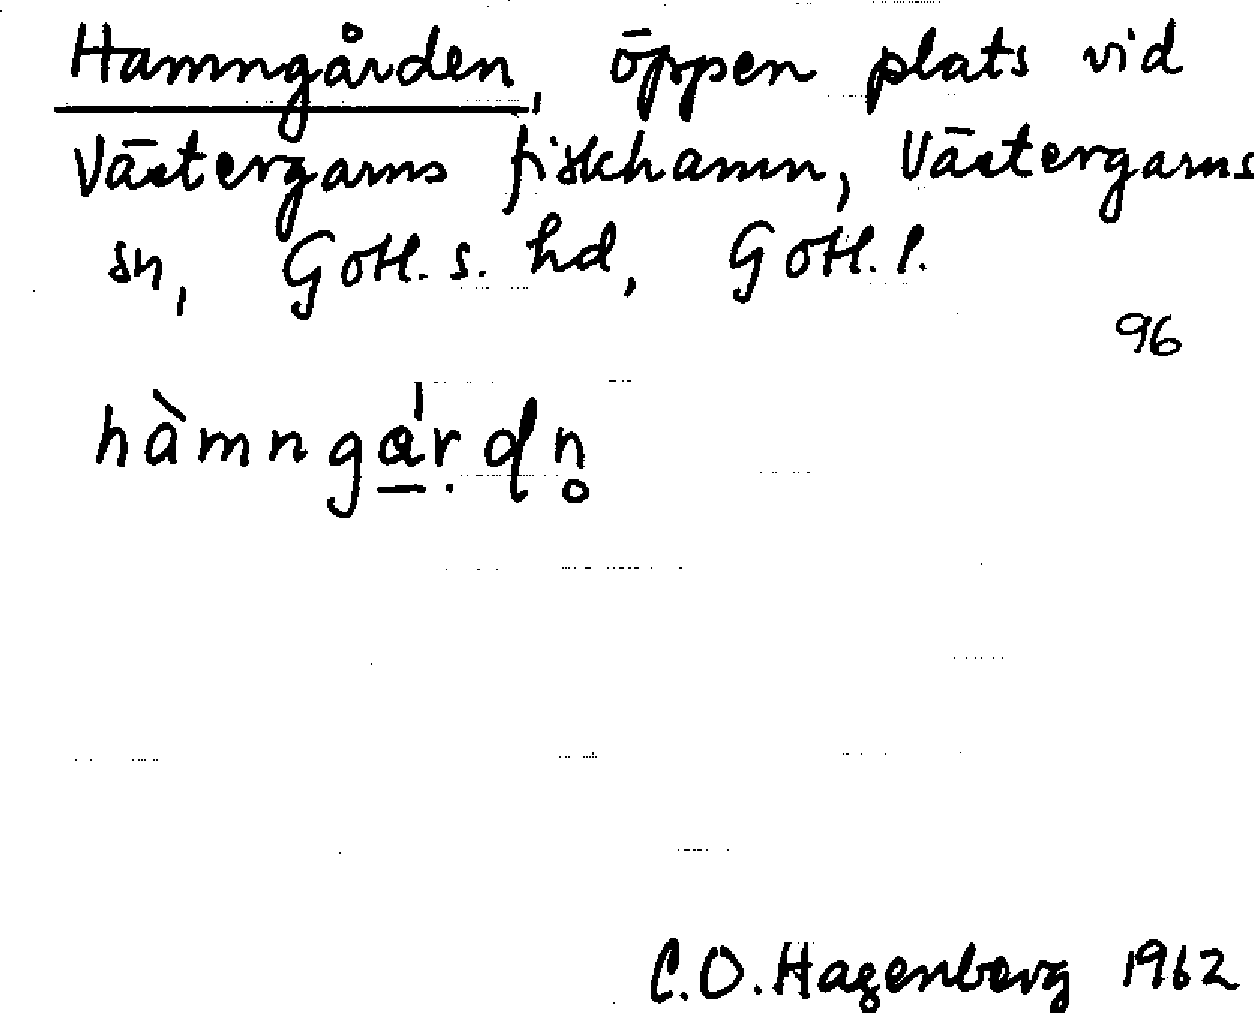 Hamngården, öppen plats vid
Västergarns fiskhamn, Västergarns
sn, Gotl. s. hd, Gotl. l.
96
hàmngá̱r.dn̥
C.O. Hagenberg 1962